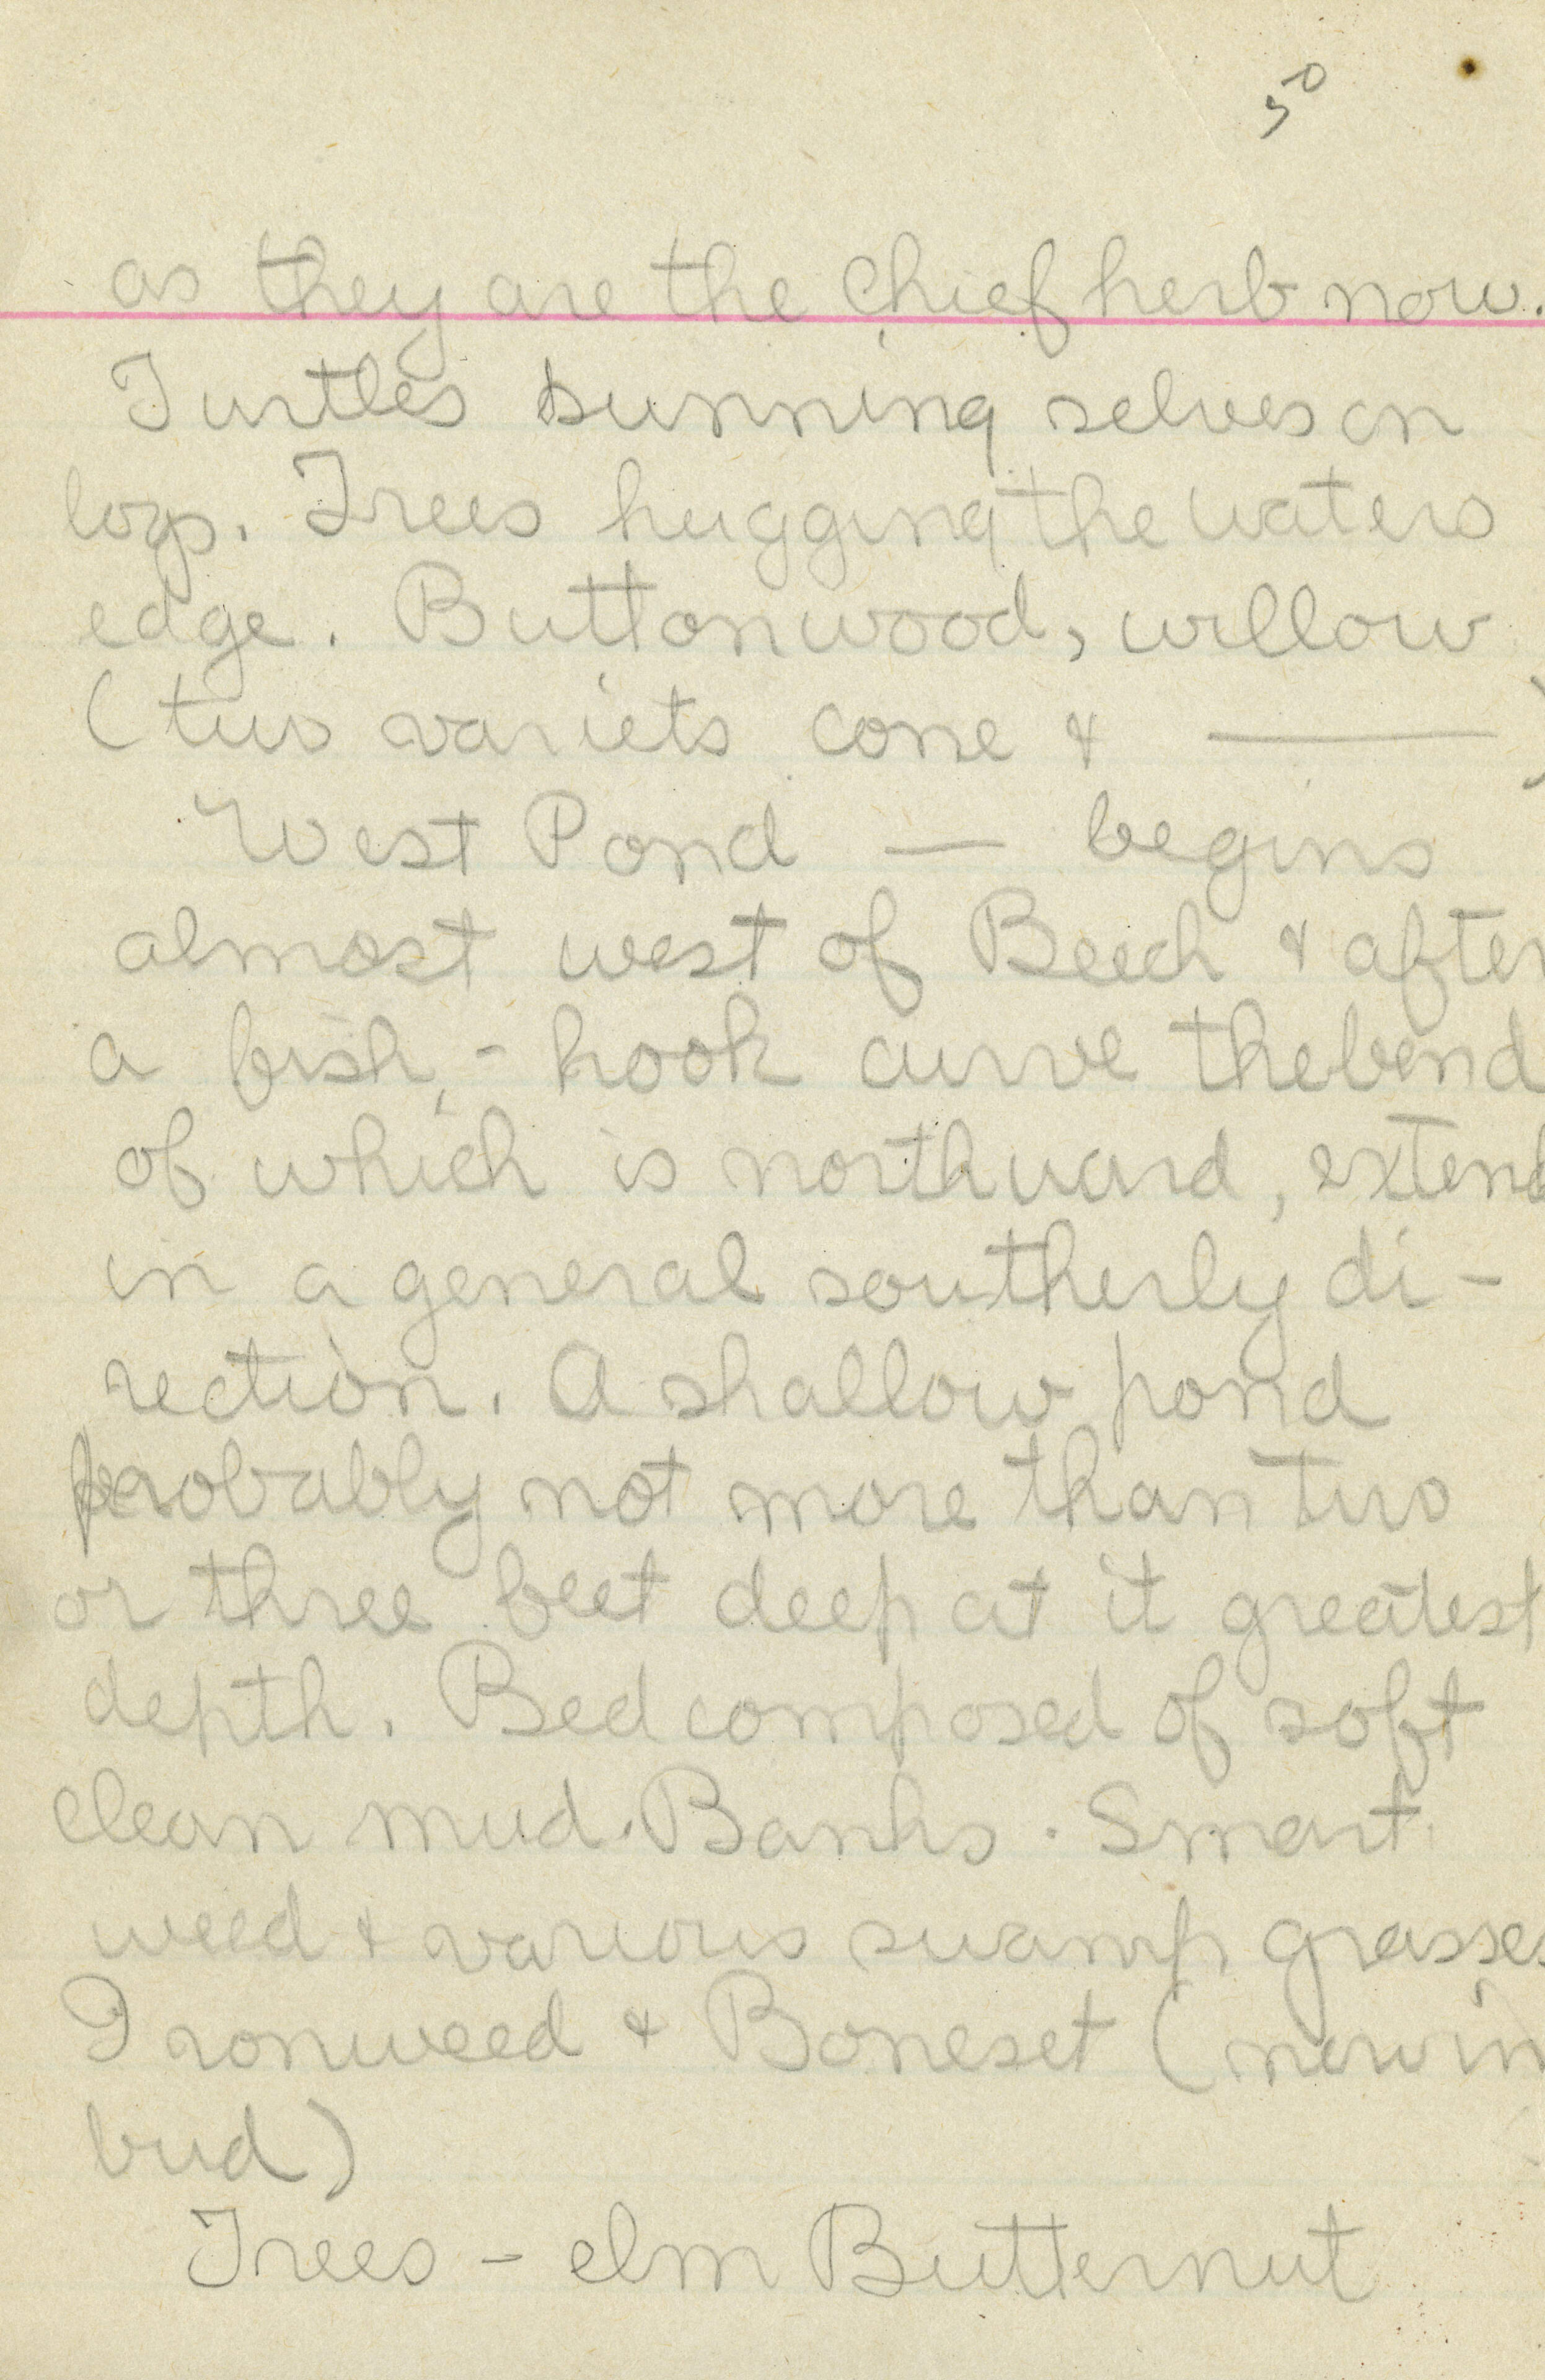 50
as they are the chief herb now.
Turtles sunning selves on
logs. Trees hugging the waters
edge. Buttonwood, willow
(two variets cone & ——— )
West Pond — begins
almost west of Beech & after
a fish,- hook curve the bend
of which is northward, extend
in a general southerly di-
rection. A shallow pond
probably not more than two
or three feet deep at it greatest
depth. Bed composed of soft
clean mud. Banks. Smart
weed & various swamp grasses
Ironweed & Boneset (now in
bud)
Trees - elm Butternut